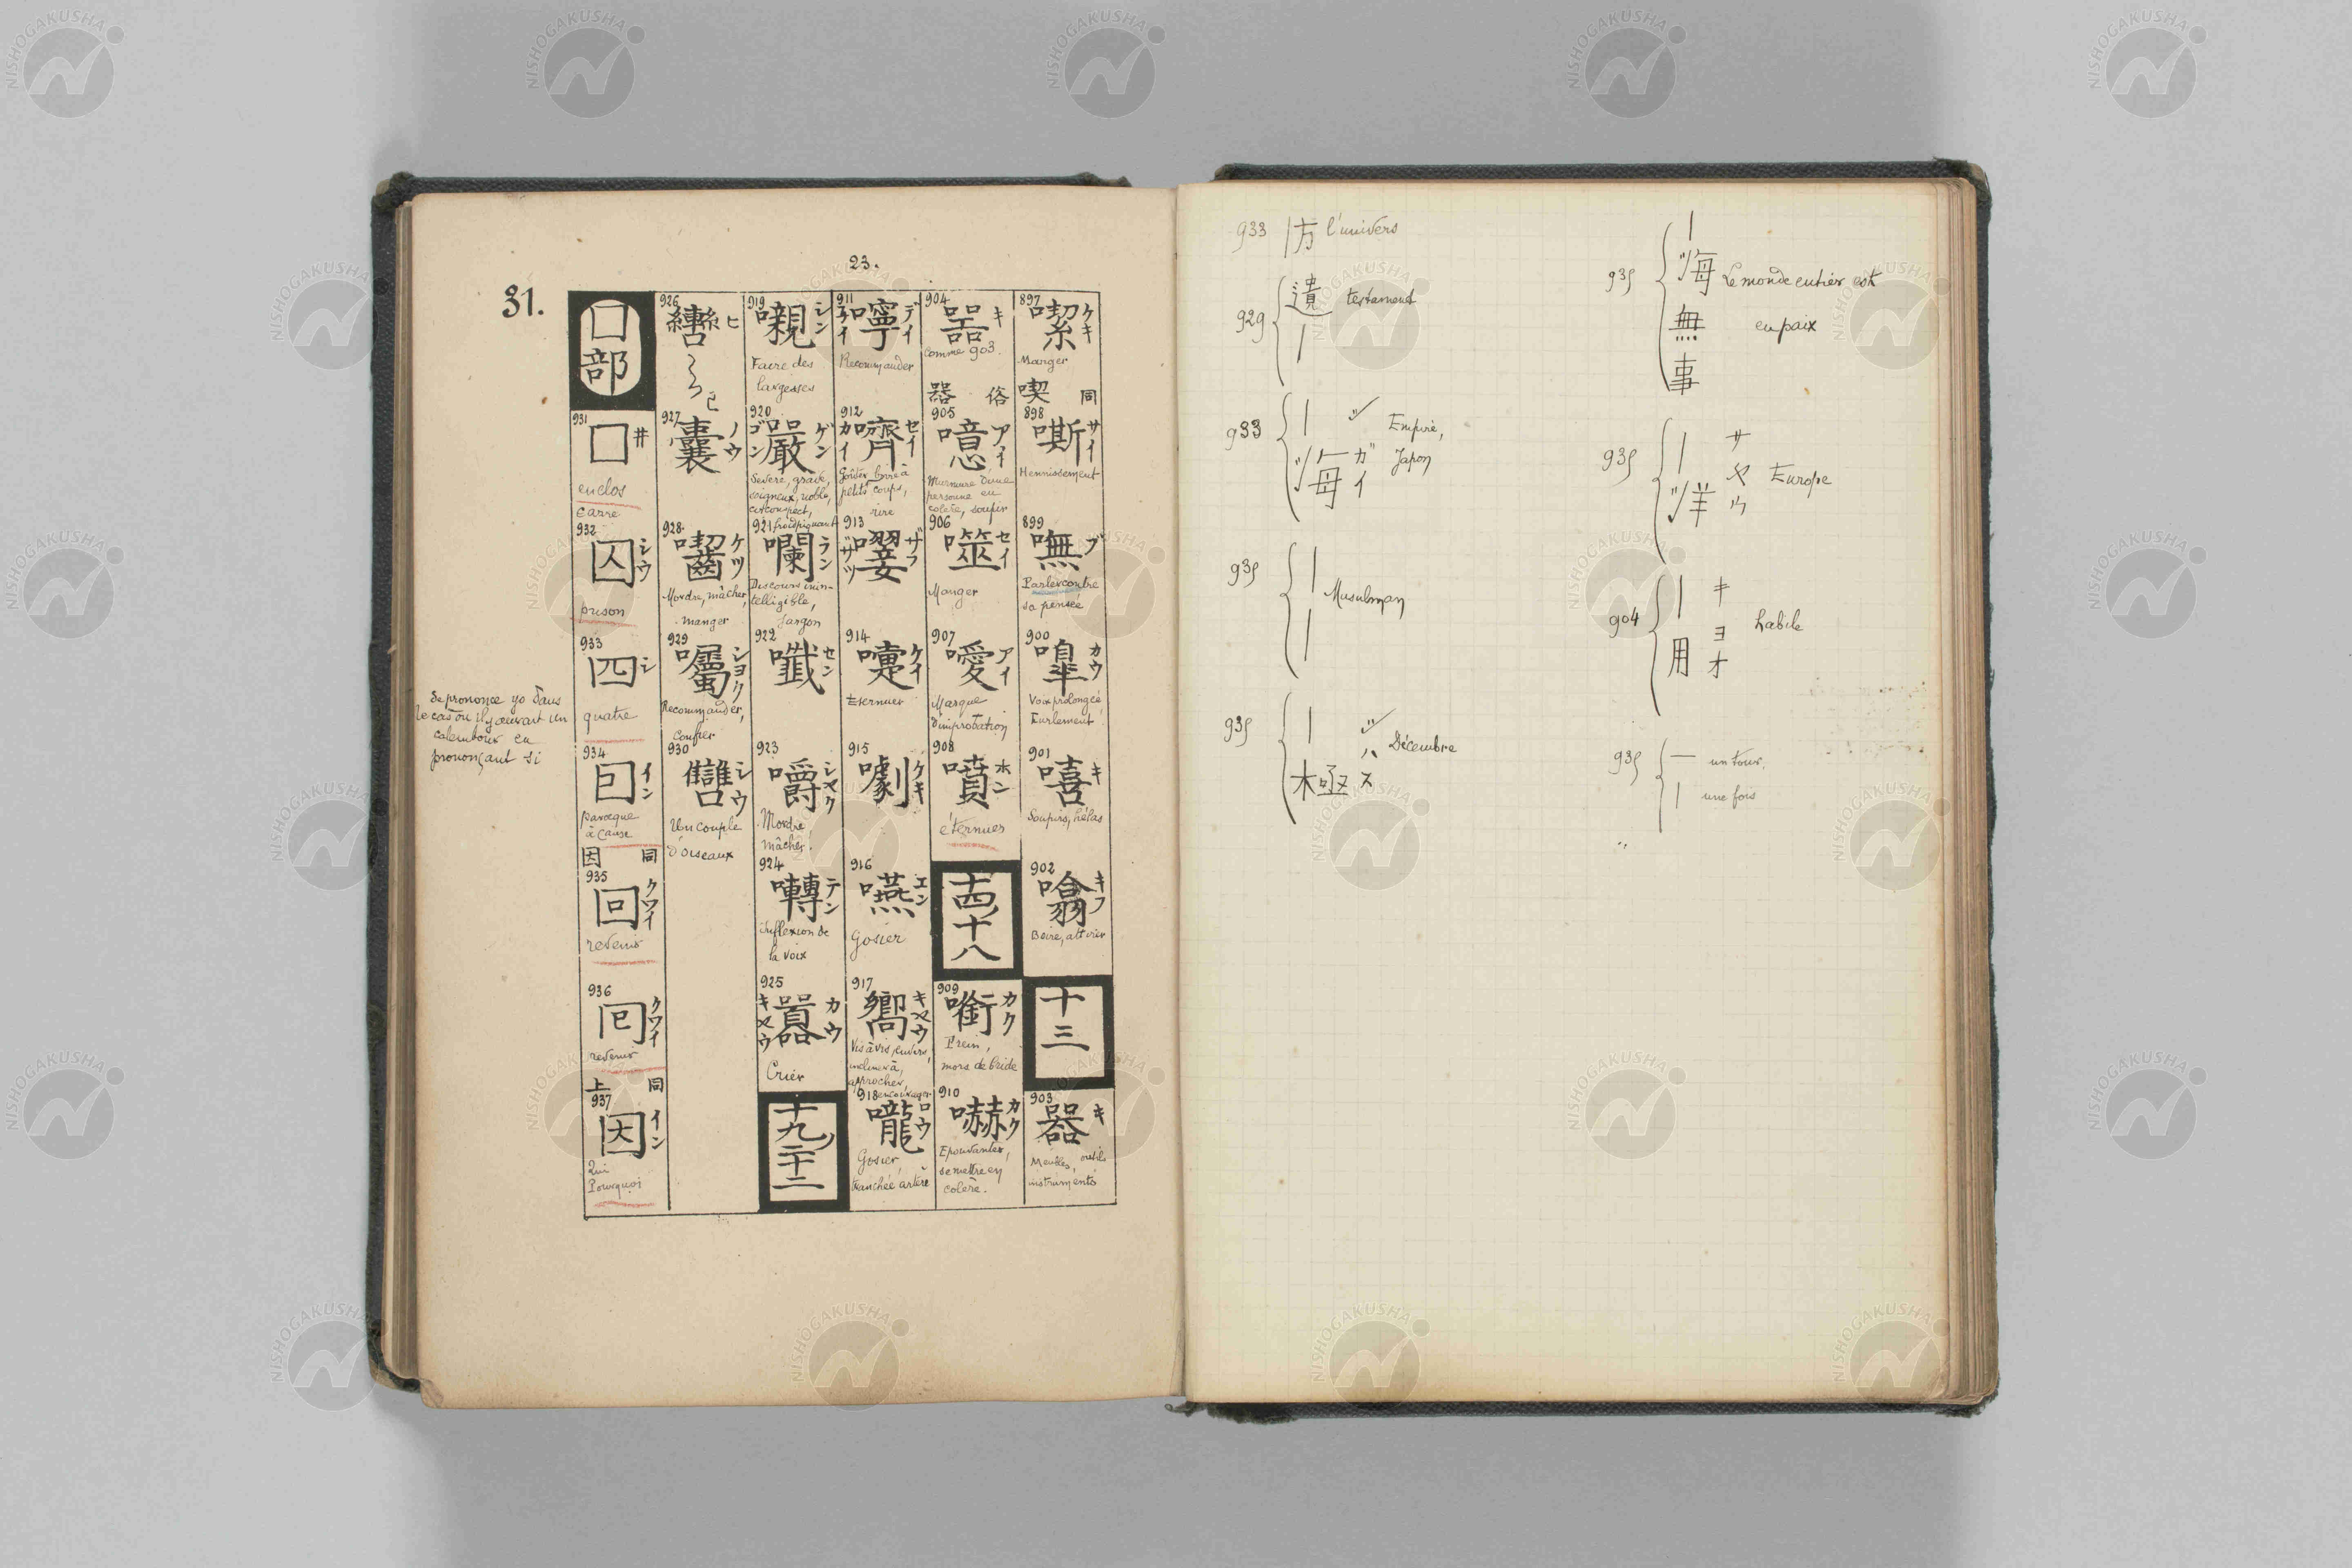 23.
31.
897
喫 ケキ
Manger
喫 同
898
嘶 サイ
Hennissement
899
嘸 ブ
Parler contre
sa pensée
900
嘷 カウ
Voix prolongée
hurlement
901
嘻 キ
Soupirs, hélas
902
噏 キフ
Boire, attirer
十三
903
器 キ
Meubles, outils
instruments
904
噐 キ
Comme 903.
器 俗
905
噫 アイ
Murmure d'une
personne en
colère, soupir
906
噬 セイ
Manger
907
噯 アイ
Marque
d'improbation
908
噴 ホン
éternuer
十四 十八
909
啣 カク
Frein,
mors de bride
910
嚇 カク
Epouvanter,
se mettre en
colère.
911
嚀 デイ
Recommander
912
嚌 セイ カイ
Goûter, boire à
petits coups,
rire
913
ザフ ザツ
914
嚔 ケイ
Eternuer
915
噱 ケキ
916
嚥 エン
Gosier
917
嚮 キヤウ
Vis à vis, envers,
incliner à,
approcher,
encourager
918
嚨 ロウ
Gosier,
tranchée artère
919
嚫 シン
Faire des
largesses
920
嚴 ゲン ゴン
Sévère, grave,
soigneux, noble,
circonspect,
froid piquant
921
囒 ラン
Discours inin-
telligible,
Jargon
922
囐 セン
923
嚼 シヤク
Mordre
mâcher
924
囀 テン
inflexion de
la voix
925
囂 カウ キヤウ
Crier
十九 二十二
926
轡 ヒ
927
囊 ノウ
928
囓 ケツ
Mordre, mâcher,
manger
929
囑 シヨク
Recommander,
confier
930
雔 シウ
Un couple
d'oiseaux
囗部
931
囗 井
enclos
carré
932
囚 シウ
prison
933
四 シ
quatre
Se prononce yo dans
le cas où il y aurait un
calembour en
prononçant si
934
囙 イン
parceque
à cause
因 同
935
回 クワイ
revenir
936
囘 クワイ
revenir
上 同
937
因 イン
Qui
Pourquoi
933 | 方 l'univers
929 遺 | testament
933 | 海 ガイ Empire, Japon
935 | | Musulman
935 | 木極 ハス Décembre
935 | 海無事 Le monde entier est
en paix
935 | 洋 サヤウ Europe
904 | 用 キヨオ habile
935 一 | un tour,
une fois